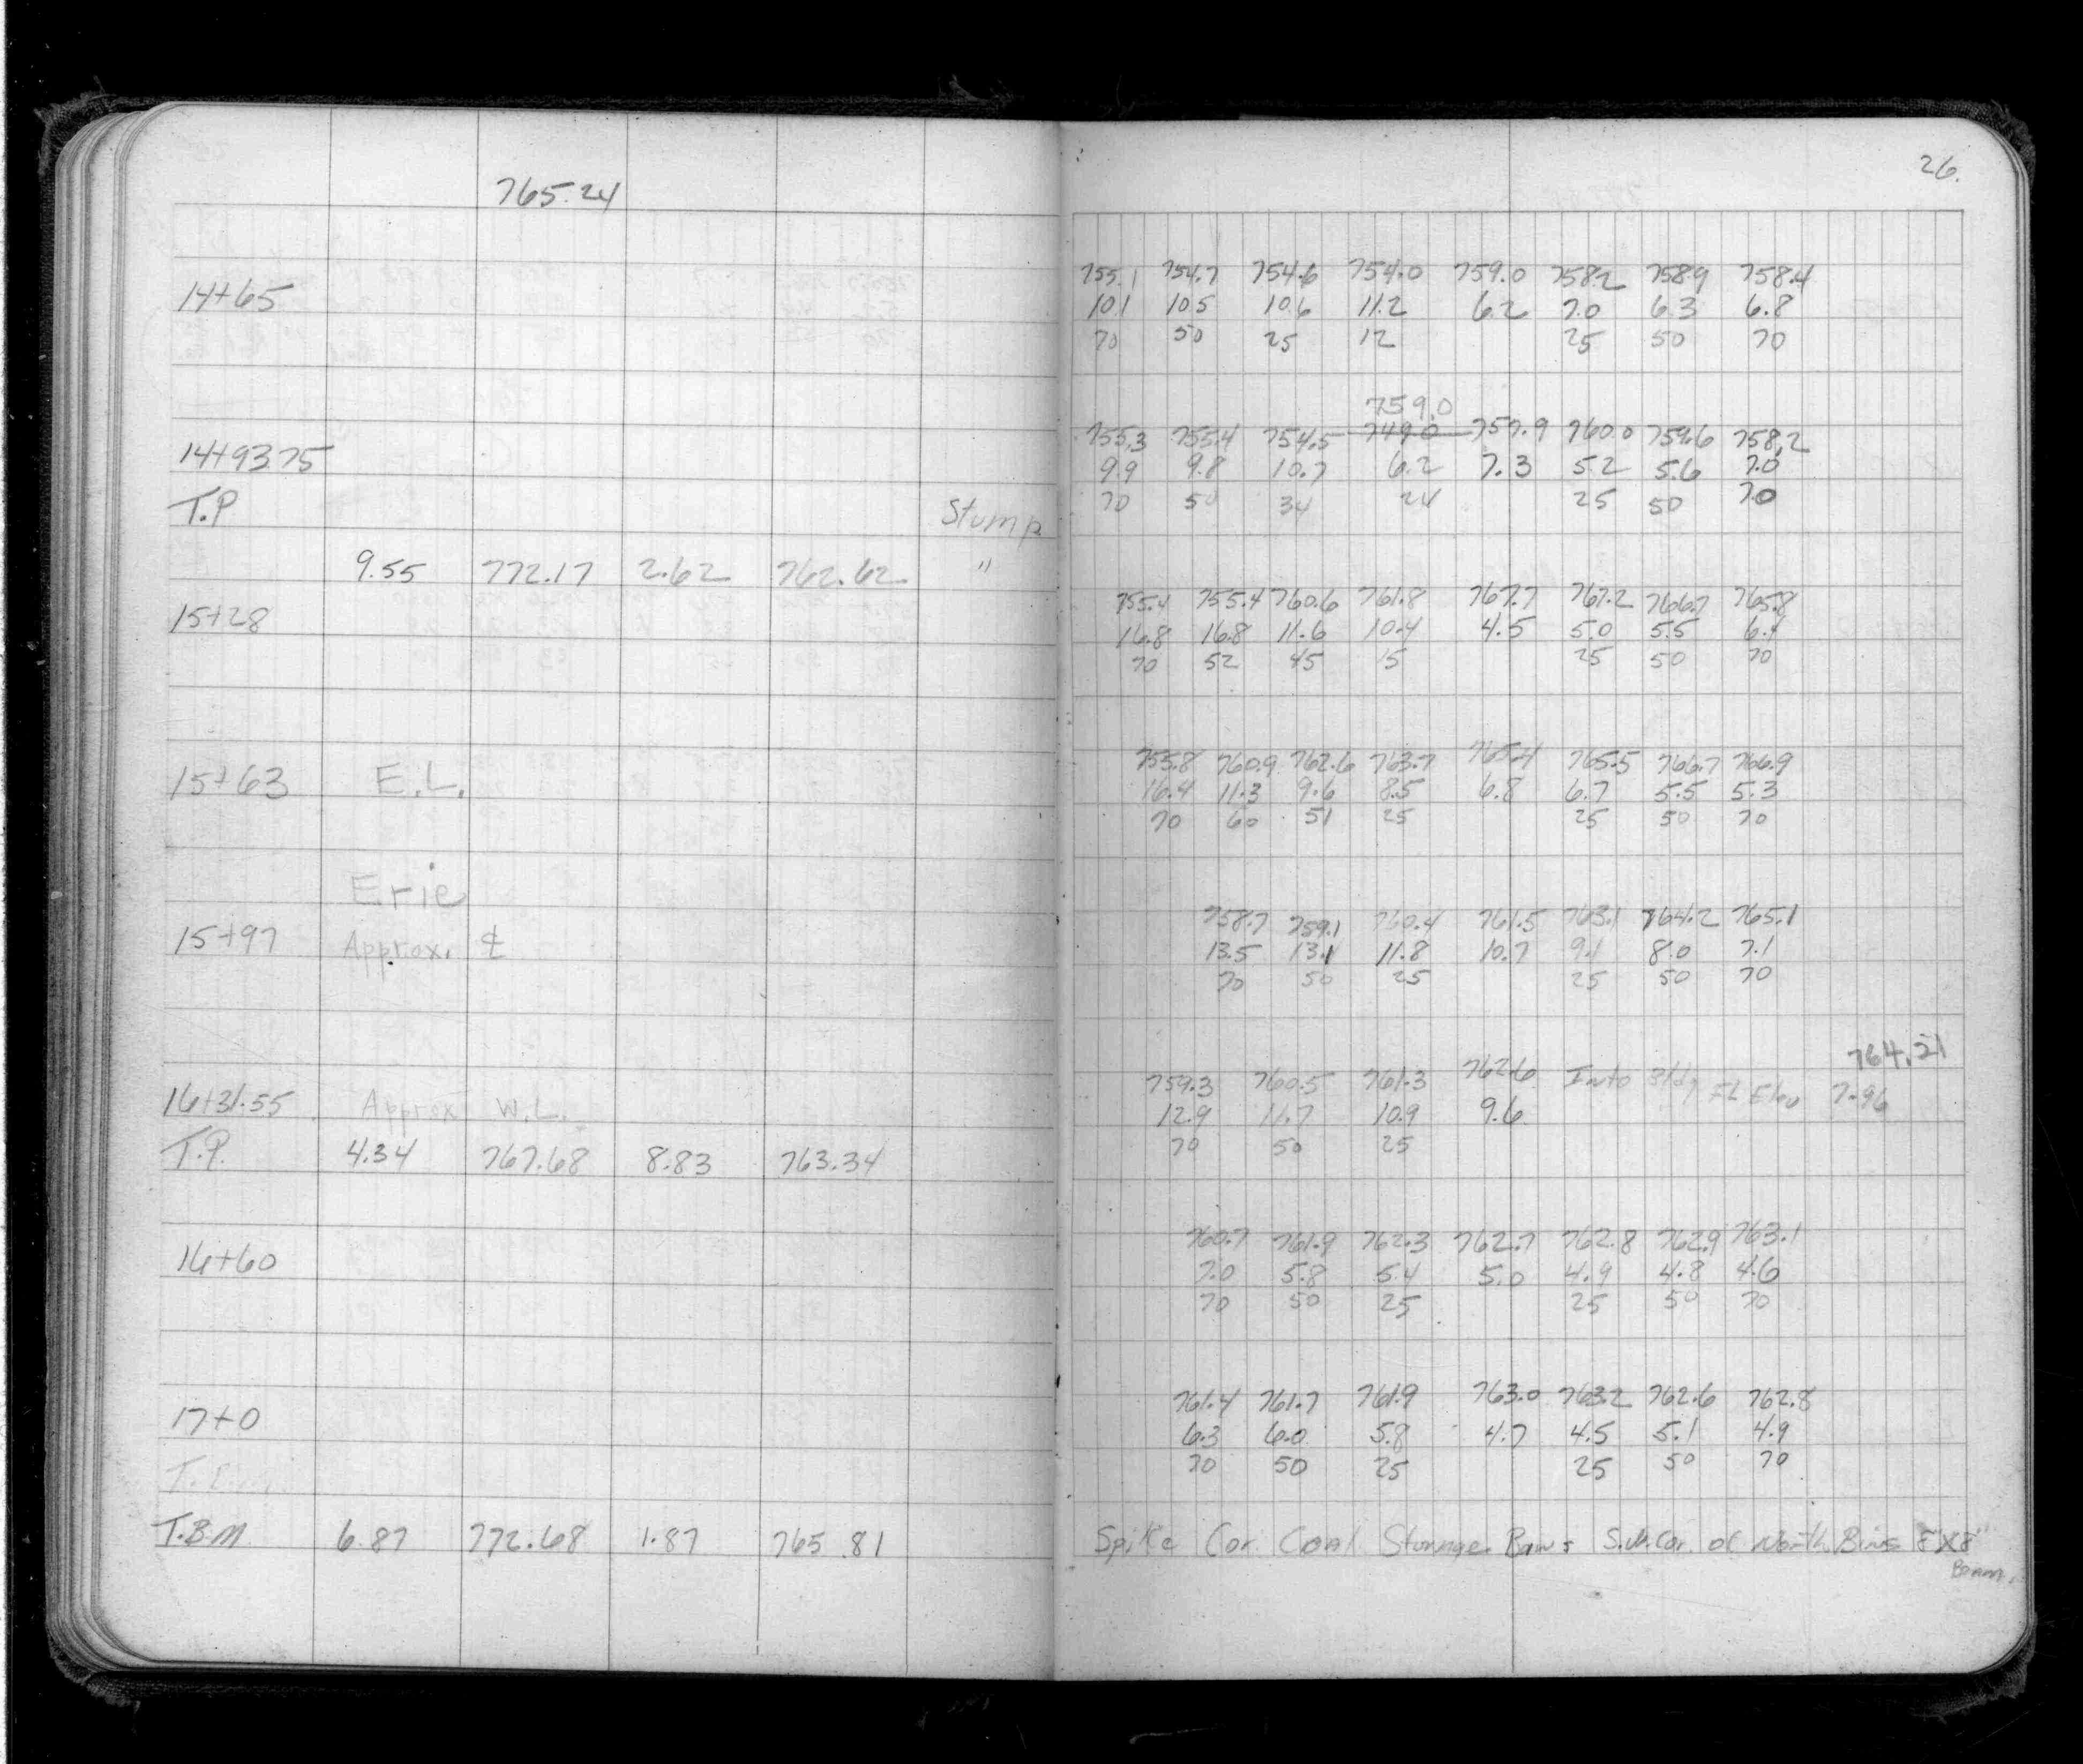 26.
765.24
755.1 754.7 754.6 754.0 759.0 758.2 758.9 758.4
14+65 10.1 10.5 10.6 11.2 6.2 7.0 6.3 6.8
70 50 25 12 25 50 70
759.0
755.3 755.4 754.5 749.0 757.9 760.0 759.6 758.2
14+93.75 9.9 9.8 10.7 6.2 7.3 5.2 5.6 7.0
T.P Stump 70 50 34 24 25 50 70
9.55 772.17 2.62 762.62 "
755.4 755.4 760.6 761.8 767.7 767.2 766.7 765.8
15+28 16.8 16.8 11.6 10.4 4.5 5.0 5.5 6.4
70 52 45 15 25 50 70
755.8 760.9 762.6 763.7 765.4 765.5 766.7 766.9
15+63 E.L. 16.4 11.3 9.6 8.5 6.8 6.7 5.5 5.3
70 60 51 25 25 50 70
Erie
758.7 759.1 760.4 761.5 763.1 764.2 765.1
15+97 Approx. ℄ 13.5 13.1 11.8 10.7 9.1 8.0 7.1
70 50 25 25 50 70
764.21
759.3 760.5 761.3 762.6 Into Bldg Fl Elev 7.96
16+31.55 Approx W.L. 12.9 11.7 10.9 9.6
70 50 25
T.P. 4.34 767.68 8.83 763.34
760.7 761.9 762.3 762.7 762.8 762.9 763.1
16+60 7.0 5.8 5.4 5.0 4.9 4.8 4.6
70 50 25 25 50 70
761.4 761.7 761.9 763.0 763.2 762.6 762.8
17+0 6.3 6.0 5.8 4.7 4.5 5.1 4.9
70 50 25 25 50 70
T.B.M. 6.87 772.68 1.87 765.81 Spike Cor. Coal Storage S.W.Cor. of North Bins 8"X8"
Beam.